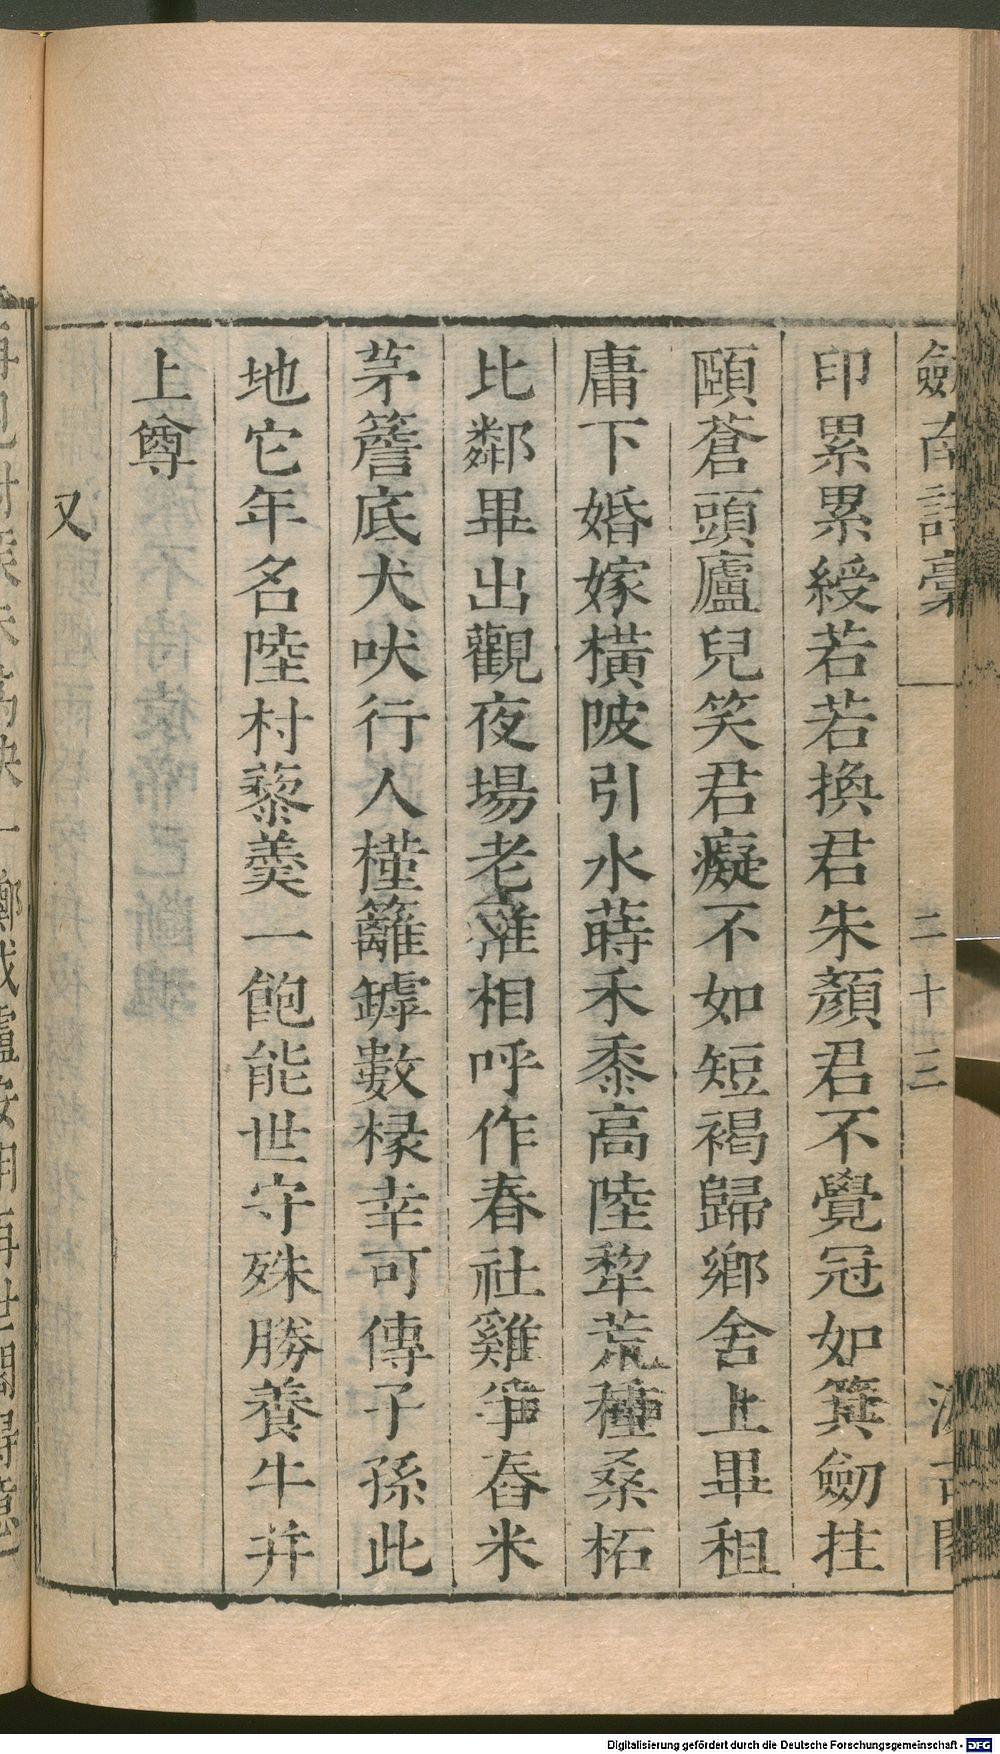 劍南詩稾
二十三
汲古閣
印累累綬若若換君朱顏君不覺冠如箕劒拄
頤蒼頭廬兒笑君癡不如短褐歸鄉舍上畢租
庸下婚嫁橫陂引水蒔禾黍高陸犂荒種桑柘
比鄰畢出觀夜場老稚相呼作春社雞爭舂米
茅簷底犬吠行人槿籬罅數椽幸可傳子孫此
地它年名陸村藜羹一飽能世守殊勝養牛并
上尊
又
Digitalisierung gefördert durch die Deutsche Forschungsgemeinschaft - DFG